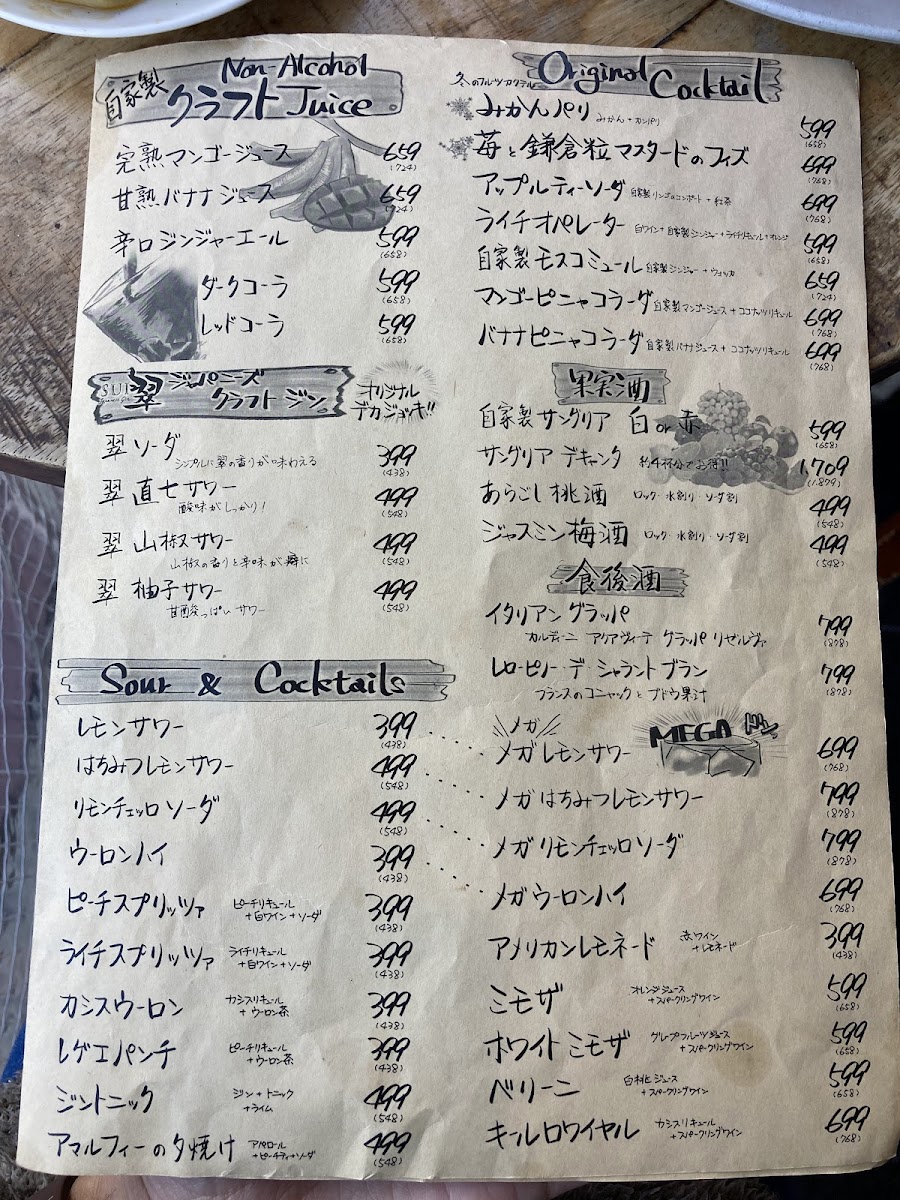 自家製
Non-Alcohol
クラフト Juice
完熟マンゴージュース 659
(724)
甘熟バナナジュース 659
(724)
辛口ジンジャーエール 599
(658)
ダークコーラ 599
(658)
レッドコーラ 599
(658)
SUI 翠 ジャパニーズ
クラフト ジン
オリジナル
デカジョッキ!!
翠 ソーダ 399
シンプルに翠の香りが味わえる (438)
翠 直七サワー 499
酸味がしっかり! (548)
翠 山椒サワー 499
山椒の香りと辛味が癖に (548)
翠 柚子サワー 499
甘酸っぱいサワー (548)
Sour & Cocktails
レモンサワー 399
(438)
はちみつレモンサワー 499
(548)
リモンチェッロソーダ 499
(548)
ウーロンハイ 399
(438)
ピーチスプリッツァ ピーチリキュール
+白ワイン+ソーダ 399
(438)
ライチスプリッツァ ライチリキュール
+白ワイン+ソーダ 399
(438)
カシスウーロン カシスリキュール
+ウーロン茶 399
(438)
レゲエパンチ ピーチリキュール
+ウーロン茶 399
(438)
ジントニック ジン+トニック
+ライム 499
(548)
アマルフィーの夕焼け アペロール
+ピーチティ+ソーダ 499
(548)
冬のフルーツカクテル Original Cocktail
みかんパリ みかん+カンパリ 599
(658)
苺と鎌倉粒マスタードのフィズ 699
(768)
アップルティーソーダ 自家製リンゴのコンポート+紅茶 699
(768)
ライチオペレーター 白ワイン+自家製ジンジャー+ライチリキュール+オレンジ 599
(658)
自家製モスコミュール 自家製ジンジャー+ウォッカ 659
(724)
マンゴーピニャコラーダ 自家製マンゴージュース+ココナッツリキュール 699
(768)
バナナピニャコラーダ 自家製バナナジュース+ココナッツリキュール 699
(768)
果実酒
自家製サングリア 白 or 赤 599
(658)
サングリア デキャンタ 約4杯分でお得!! 1,709
(1,879)
あらごし桃酒 ロック・水割り・ソーダ割 499
(548)
ジャスミン梅酒 ロック・水割り・ソーダ割 499
(548)
食後酒
イタリアングラッパ 799
カルディーニ アクアヴィーテ グラッパ リゼルヴァ (878)
レロ・ピノー・デ・シャラントブラン 799
フランスのコニャックとブドウ果汁 (878)
メガ MEGA
メガレモンサワー 699
(768)
メガはちみつレモンサワー 799
(878)
メガリモンチェッロソーダ 799
(878)
メガウーロンハイ 699
(768)
アメリカンレモネード 赤ワイン
+レモネード 399
(438)
ミモザ オレンジジュース
+スパークリングワイン 599
(658)
ホワイトミモザ グレープフルーツジュース
+スパークリングワイン 599
(658)
ベリーニ 白桃ジュース
+スパークリングワイン 599
(658)
キールロワイヤル カシスリキュール
+スパークリングワイン 699
(768)